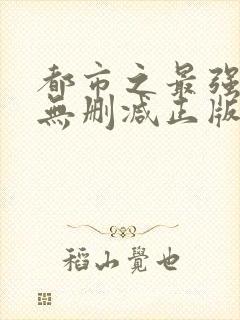 都市之最强
無删减正版
稻山覺也